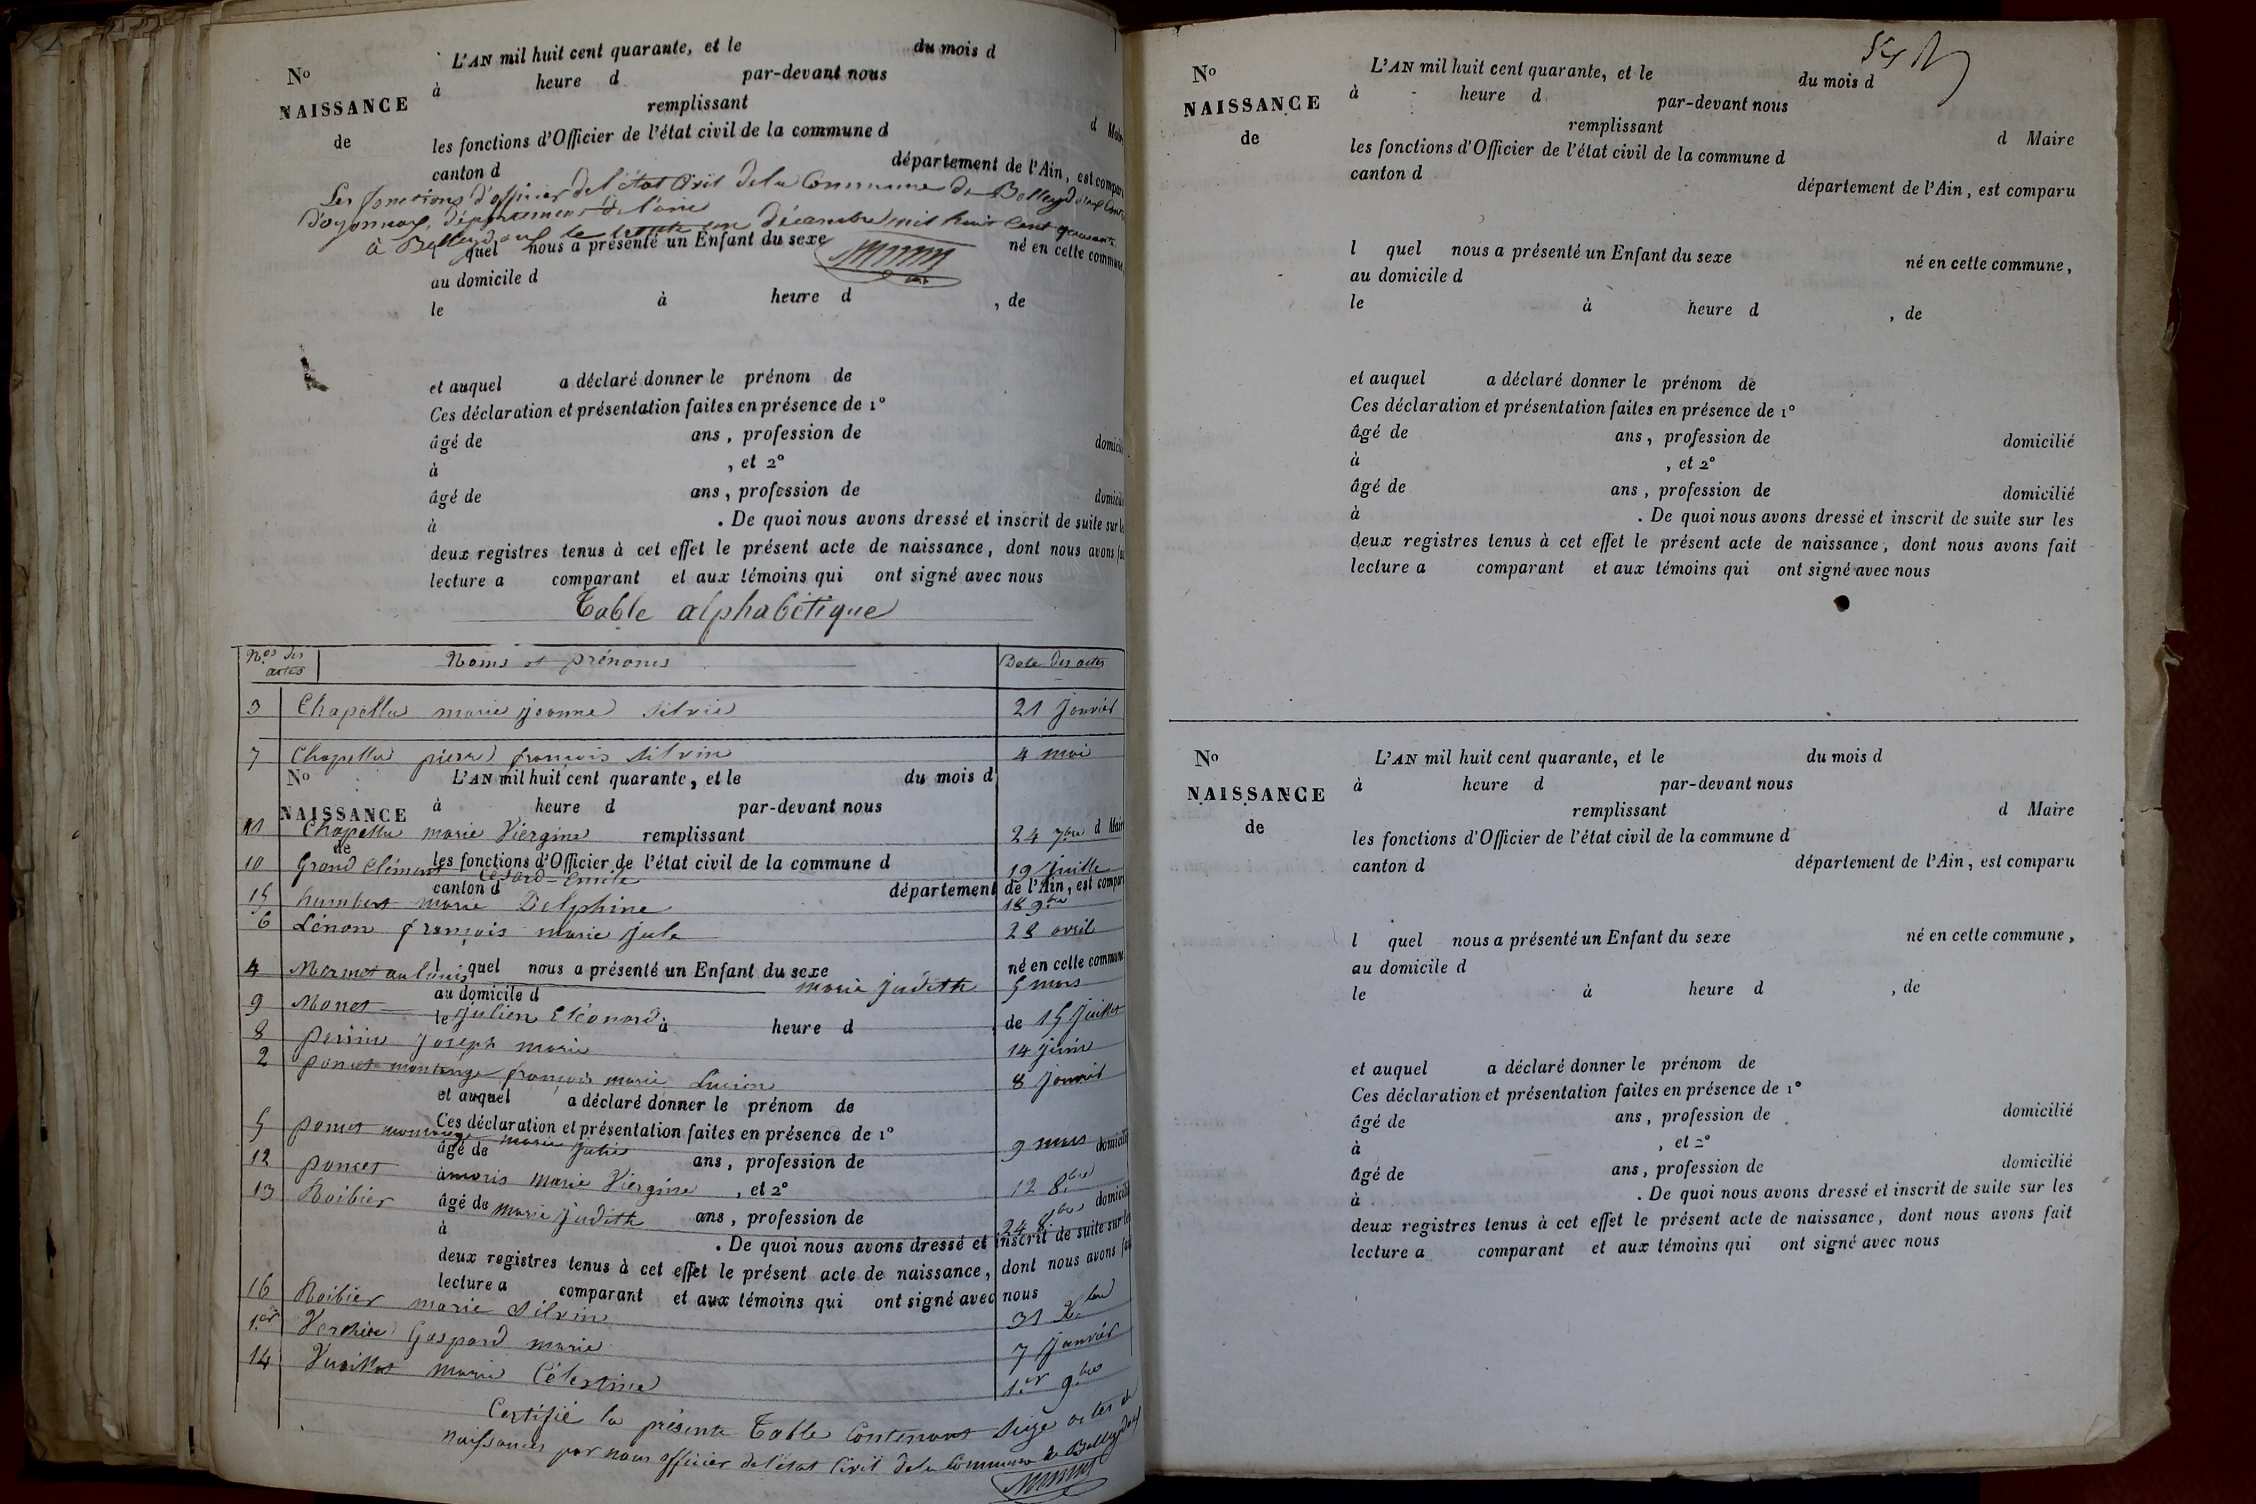 L'AN mil huit cent quarante, et le du mois d
No à heure d par-devant nous
NAISSANCE remplissant d Maire
de les fonctions d'Officier de l'état civil de la commune d
canton d département de l'Ain, est comparu
Les fonctions d'officier de l'état civil de la Commune de Belleydoux Canton
d'oyonnax, département de l'ain
à Belleydoux le trente un décembre mil huit cent quarante
l quel nous a présenté un Enfant du sexe né en cette commune,
au domicile d
le à heure d , de
et auquel a déclaré donner le prénom de
Ces déclaration et présentation faites en présence de 1º
âgé de ans, profession de domicilié
à , et 2º
âgé de ans, profession de domicilié
à . De quoi nous avons dressé et inscrit de suite sur les
deux registres tenus à cet effet le présent acte de naissance, dont nous avons fait
lecture a comparant et aux témoins qui ont signé avec nous
Table alphabétique
Nos des actes Noms et prénoms Date des actes
3 Chapellu marie jeanne Silvie 21 janvier
7 Chapellu pierre françois Silvin 4 mai
No L'AN mil huit cent quarante, et le du mois d
à heure d par-devant nous
NAISSANCE
11 Chapellu marie Viergine 24 7bre
remplissant d Maire
de les fonctions d'Officier de l'état civil de la commune d
10 Grand Clément Cesard Emile 19 juillet
canton d département de l'Ain, est comparu
15 humbert marie Delphine 18 9bre
6 Lénon françois marie jule 28 avril
l quel nous a présenté un Enfant du sexe né en cette commune
4 Mermet au louis marie judith 5 mars
au domicile d
9 Monet julien Eléonard 15 juillet
le à heure d de
8 perrin joseph marie 14 juin
2 poncet montange françois marie Lucien 8 janvier
et auquel a déclaré donner le prénom de
Ces déclaration et présentation faites en présence de 1º
5 poncet montange marie julie 9 mars
âgé de ans, profession de domicilié
12 poncet amaris marie Viergine 12 8bre
à , et 2º
13 Roibier marie judith 24 8bre
âgé de ans, profession de domicilié
à . De quoi nous avons dressé et inscrit de suite sur les
deux registres tenus à cet effet le présent acte de naissance, dont nous avons fait
lecture a comparant et aux témoins qui ont signé avec nous
16 Roibier marie Silvin 31 Xbre
1er Verchère Gaspard marie 7 janvier
14 Vuaillat marie Célestine 1er 9bre
Certifié la présente Table Contenant Seize actes de
naissances par nous officier de l'état Civil de la Commune de Belleydoux
L'AN mil huit cent quarante, et le du mois d
No à heure d par-devant nous
NAISSANCE remplissant d Maire
de les fonctions d'Officier de l'état civil de la commune d
canton d département de l'Ain, est comparu
l quel nous a présenté un Enfant du sexe né en cette commune,
au domicile d
le à heure d , de
et auquel a déclaré donner le prénom de
Ces déclaration et présentation faites en présence de 1º
âgé de ans, profession de domicilié
à , et 2º
âgé de ans, profession de domicilié
à . De quoi nous avons dressé et inscrit de suite sur les
deux registres tenus à cet effet le présent acte de naissance, dont nous avons fait
lecture a comparant et aux témoins qui ont signé avec nous
No L'AN mil huit cent quarante, et le du mois d
NAISSANCE à heure d par-devant nous
remplissant d Maire
de les fonctions d'Officier de l'état civil de la commune d
canton d département de l'Ain, est comparu
l quel nous a présenté un Enfant du sexe né en cette commune,
au domicile d
le à heure d , de
et auquel a déclaré donner le prénom de
Ces déclaration et présentation faites en présence de 1º
âgé de ans, profession de domicilié
à , et 2º
âgé de ans, profession de domicilié
à . De quoi nous avons dressé et inscrit de suite sur les
deux registres tenus à cet effet le présent acte de naissance, dont nous avons fait
lecture a comparant et aux témoins qui ont signé avec nous